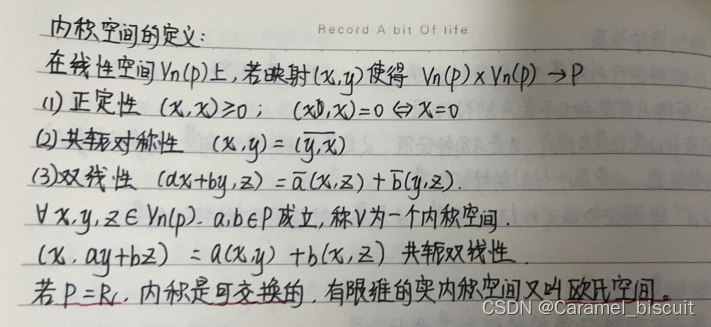 Record A bit Of life
内积空间的定义:
在线性空间Vn(p)上,若映射(x,y)使得 Vn(p)×Vn(p)→P
(1) 正定性 (x,x)≥0; (x,x)=0⇔x=0
(2) 共轭对称性 (x,y)=(\overline{y,x})
(3) 双线性 (ax+by,z)=\overline{a}(x,z)+\overline{b}(y,z).
∀x,y,z∈Vn(p).a,b∈P成立,称V为一个内积空间.
(x.ay+bz)=a(x,y)+b(x,z) 共轭双线性.
若P=R,内积是可交换的,有限维的实内积空间又叫欧氏空间。
CSDN @Caramel_biscuit